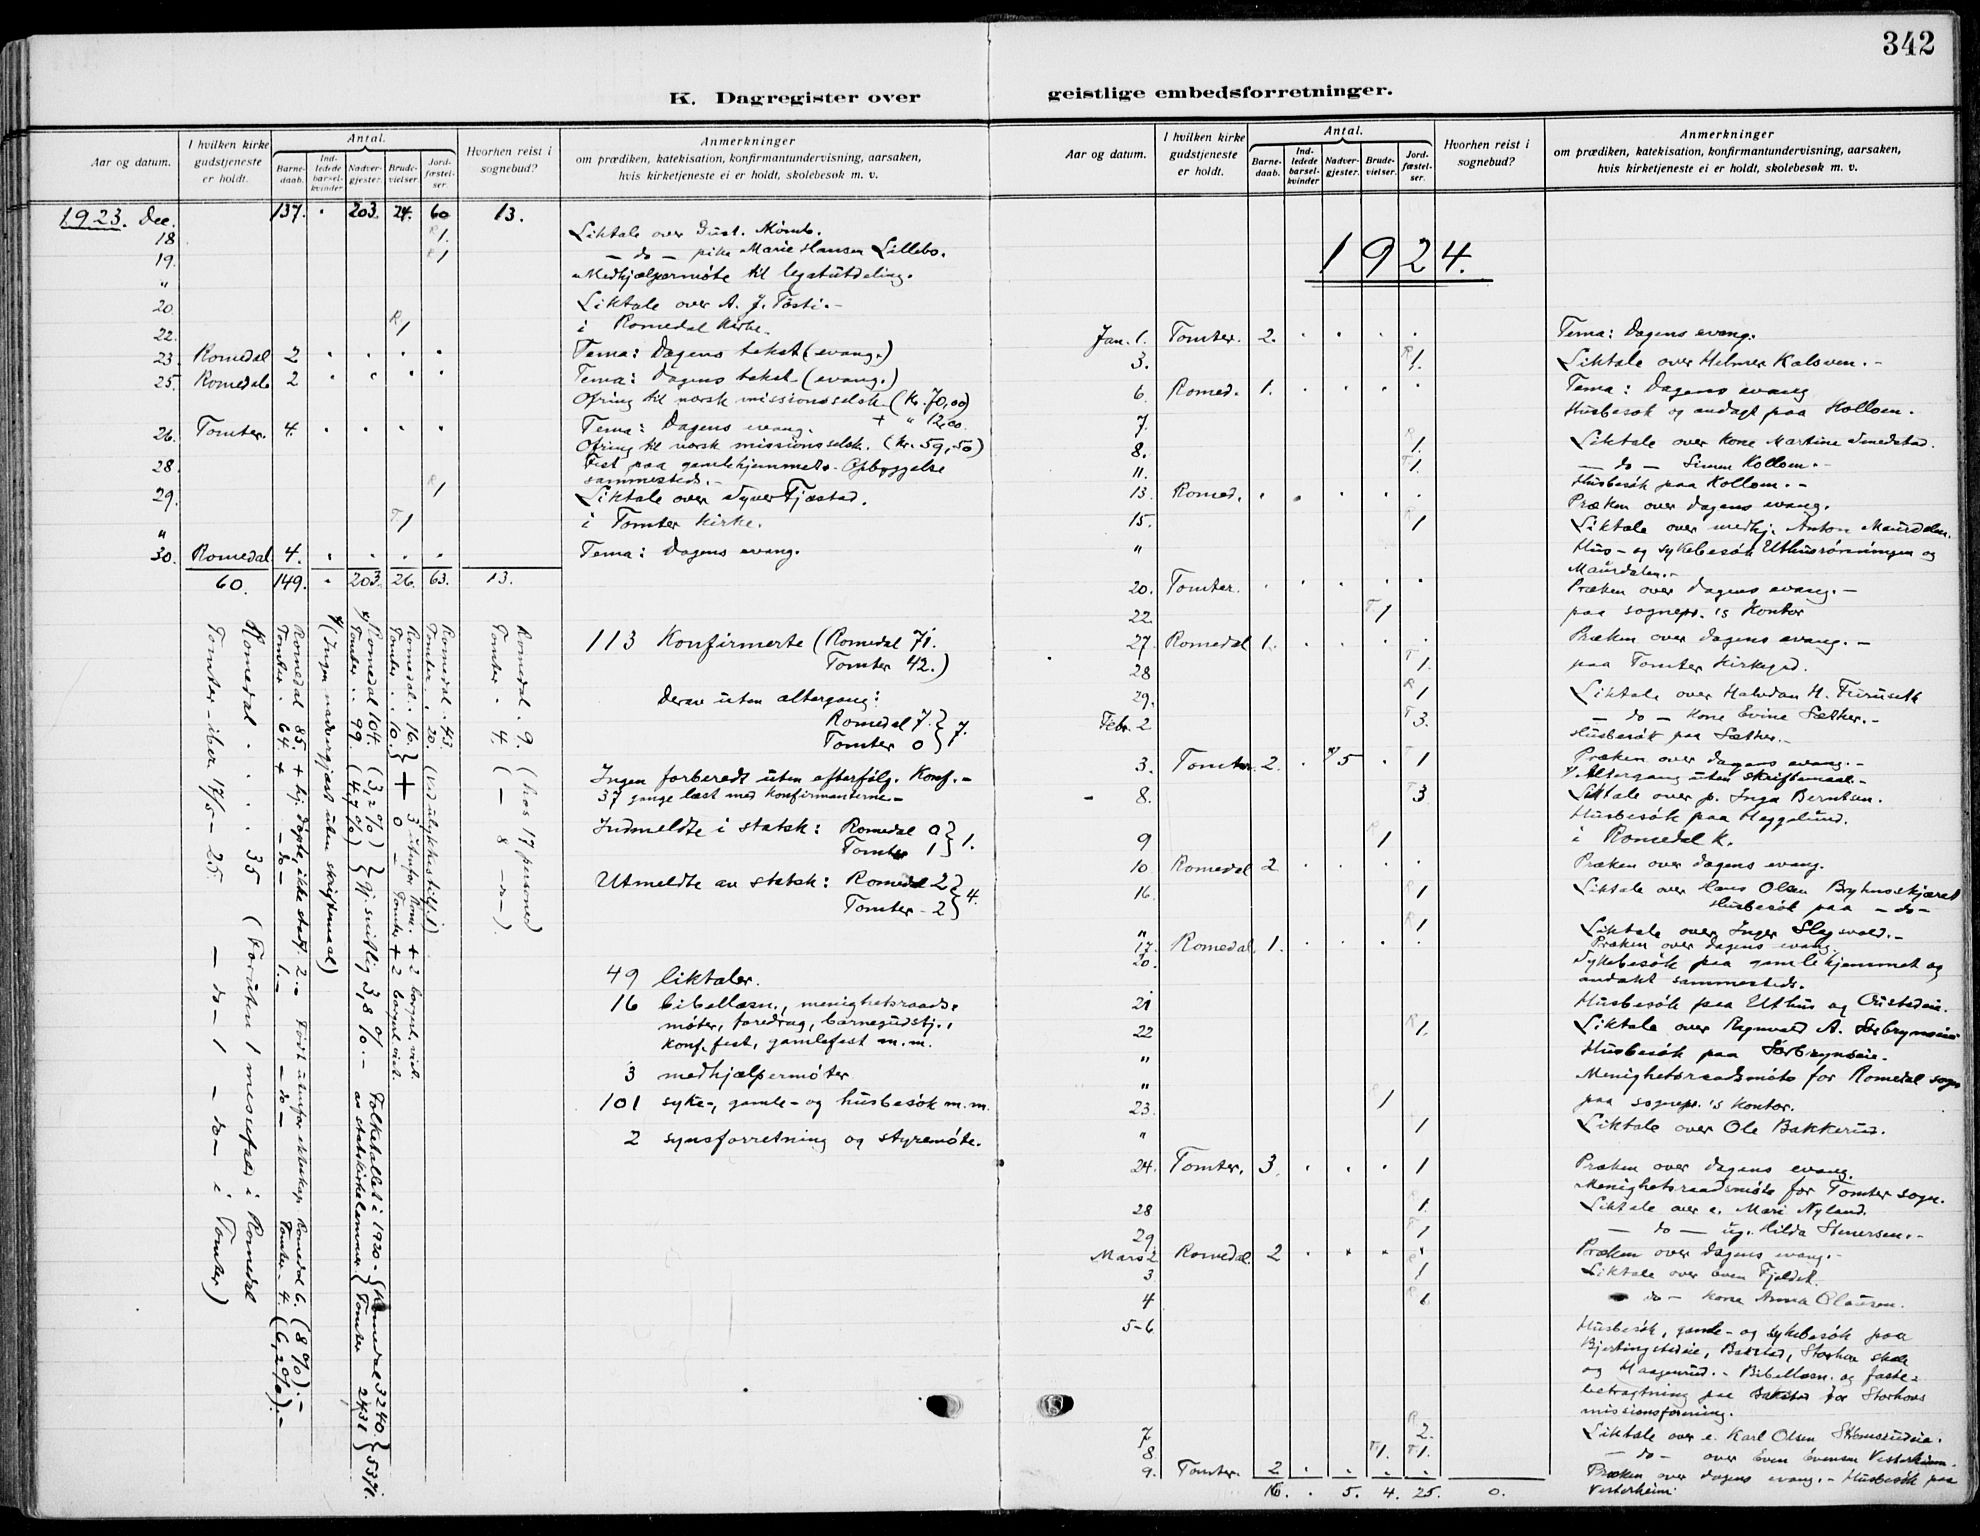 342
K. Dagregister over geistlige embedsforretninger.
Aar og datum.
I hvilken kirke gudstjeneste er holdt.
Antal.
Barnedaab.
Indledede barselkvinder
Nadvergjester.
Brudevielser.
Jordfæstelser.
Hvorhen reist i sognebud?
Anmerkninger
om prædiken, katekisation, konfirmantundervisning, aarsaken,
hvis kirketjeneste ei er holdt, skolebesøk m. v.
1923. Dec. 137. 203. 24. 60 13.
18 R 1. Liktale over Gust.
19. R 1 — do — pike Marie Hansen Lillebo.
" Medhjælpermøte til legatutdeling.
20. Liktale over A. J. Tosti.-
22. R 1 i Romedal Kirke.
23 Romedal 2 . . . . Tema: Dagens tekst (evang.)
25. Romedal 2 . . . . Tema: Dagens tekst (evang.)
Ofring til norsk missionsselsk. (Kr. 70,00)
+ " 12,00.
26. Tomter. 4. . . . . Tema: Dagens evang.
Ofring til norsk missionsselsk. (Kr. 59,50)
28. Fest paa gamlehjemmet. Opbyggelse
sammesteds.-
29. R 1 Liktale over Syver Fjæstad.
" T 1 i Tomter Kirke.
30. Romedal 4. . . . . Tema: Dagens evang.
60. 149. 203. 26. 63. 13.
113 Konfirmerte (Romedal 71.
Tomter 42.)
Derav uten altergang:
Romedal 7. } 7.
Tomter 0
Ingen forberedt uten efterfølg. Konf.-
37 gange læst med Konfirmanterne.-
Indmeldte i statsk: Romedal 0 } 1.
Tomter 1
Utmeldte av statsk: Romedal 2 } 4.
Tomter - 2
49 liktaler.
16 bibellæsn., menighetsraads-
møter, foredrag, barnegudstj.,
Konf.fest, gamlefest m.m.
3 medhjælpermøter
101 syke-, gamle- og husbesøk m.m.
2 synsforretning og styremøte.
Romedal . 9. (hos 17 personer)
Tomter . 4. ( — 8 — do — )
Romedal . 43. (Ved ulykkestilf. 1)
Tomter . 20.
Romedal . 16. } + 3 utenfor Rom. + 2 borgerl. viet.
Tomter . . 10. } 0 — Tomter + 2 borgerl. viet.
Romedal 104. (3,2 %) } gj.snitlig 3,8 %. - Folketallet i 1920 - { Romedal 3240. } 5371.
Tomter . . 99. (4,7 %) } av statskirkelemmer { Tomter 2131
(Ingen nadvergjæst uten skriftemaal)
Romedal 85. + hj. døpte, ikke stadf. 2.- Født utenfor ekteskap. Romedal 6. (8 %).-
Tomter . 64. + — do — 1.- — do — Tomter - 4. (6,2 %).-
Romedal . . . 35 (Foruten 1 messefald i Romedal
Tomter - iber. 17/5 - 25 — do — 1 — do — i Tomter)
Aar og datum.
I hvilken kirke gudstjeneste er holdt.
Antal.
Barnedaab.
Indledede barselkvinder
Nadvergjester.
Brudevielser.
Jordfæstelser.
Hvorhen reist i sognebud?
Anmerkninger
om prædiken, katekisation, konfirmantundervisning, aarsaken,
hvis kirketjeneste ei er holdt, skolebesøk m. v.
1924.
Jan. 1. Tomter. 2. . . . . Tema: Dagens evang.
3. R 1. Liktale over Helmer Kalsveen.-
6. Romed. 1. . . . . Tema: Dagens evang
7. Husbesøk og andagt paa Kolloen.
8. R 1. Liktale over Kone Martine Smedstad.
11. T 1. — do — Simen Kolloen.-
Husbesøk paa Kolloen.-
13. Romed. . . . . . Præken over dagens evang.
15. R 1 Liktale over medhj. Anton Maurdalen.
" Hus- og sykebesøk Uthusrønningen og
Maurdalen.-
20. Tomter. . . . . . Præken over dagens evang.-
22. T 1 paa sognepr.'s Kontor
27. Romedal 1. . . . . Præken over dagens evang.-
28 T 1. paa Tomter Kirkegd.
29. R 1 Liktale over Halvdan H. Furuseth
Febr. 2 T 3. — do — Kone Evine Sæther.-
Husbesøk paa Sæther.-
3. Tomter. 2. . 5 . T 1 Præken over dagens evang.-
Altergang uten skriftemaal.-
8. T 3 Liktale over p. Inga Berntsen.
Husbesøk paa Heggelund.
9 R 1 i Romedal K.
10 Romedal 2 . . . . Præken over dagens evang.
16. R 1 Liktale over Hans Olsen Bryhnskjæret
Husbesøk paa — do —
" R 1 Liktale over Inger Slagsvold.-
17. Romedal. 1. . . . . Præken over dagens evang.
20. Sykebesøk paa gamlehjemmet og
andakt sammesteds.
21 Husbesøk paa Uthus og
22 R 1. Liktale over Ragnvald A.
" Husbesøk paa
" Menighetsraadsmøte for Romedal sogn
23. R 1 paa sognepr.'s Kontor.
" 1 Liktale over Ole Bakkerud.
24. Tomter. 3. . . . 1 Præken over dagens evang.
Menighetsraadsmøte for Tomter sogn.
28 1. Liktale over e. Mari Nyland.
29 T 1 — do — ug. Hilda Stenersen.-
Mars 2 Romedal. 2 . . . . Præken over dagens evang.-
3. R 1 Liktale over Even Fjeldet.
4 R 1 — do — Kone Anna Olausen.
5-6 Husbesøk, gamle- og sykebesøk paa
Bjertingstadeie, Bakstad, Storhov skole
og Haagenrud.- Bibellæsn. og faste-
betragtning paa for Storhovs
missionsforening.
7. R 2. Liktale over e. Karl Olsen
8 T 1. T 1. — do — over Even Evensen Vesterheim.
9. Tomter. 2 . . . . Præken over dagens evang.- Husbesøk paa
Vesterheim.
16. . 5. 4. 25. 0.